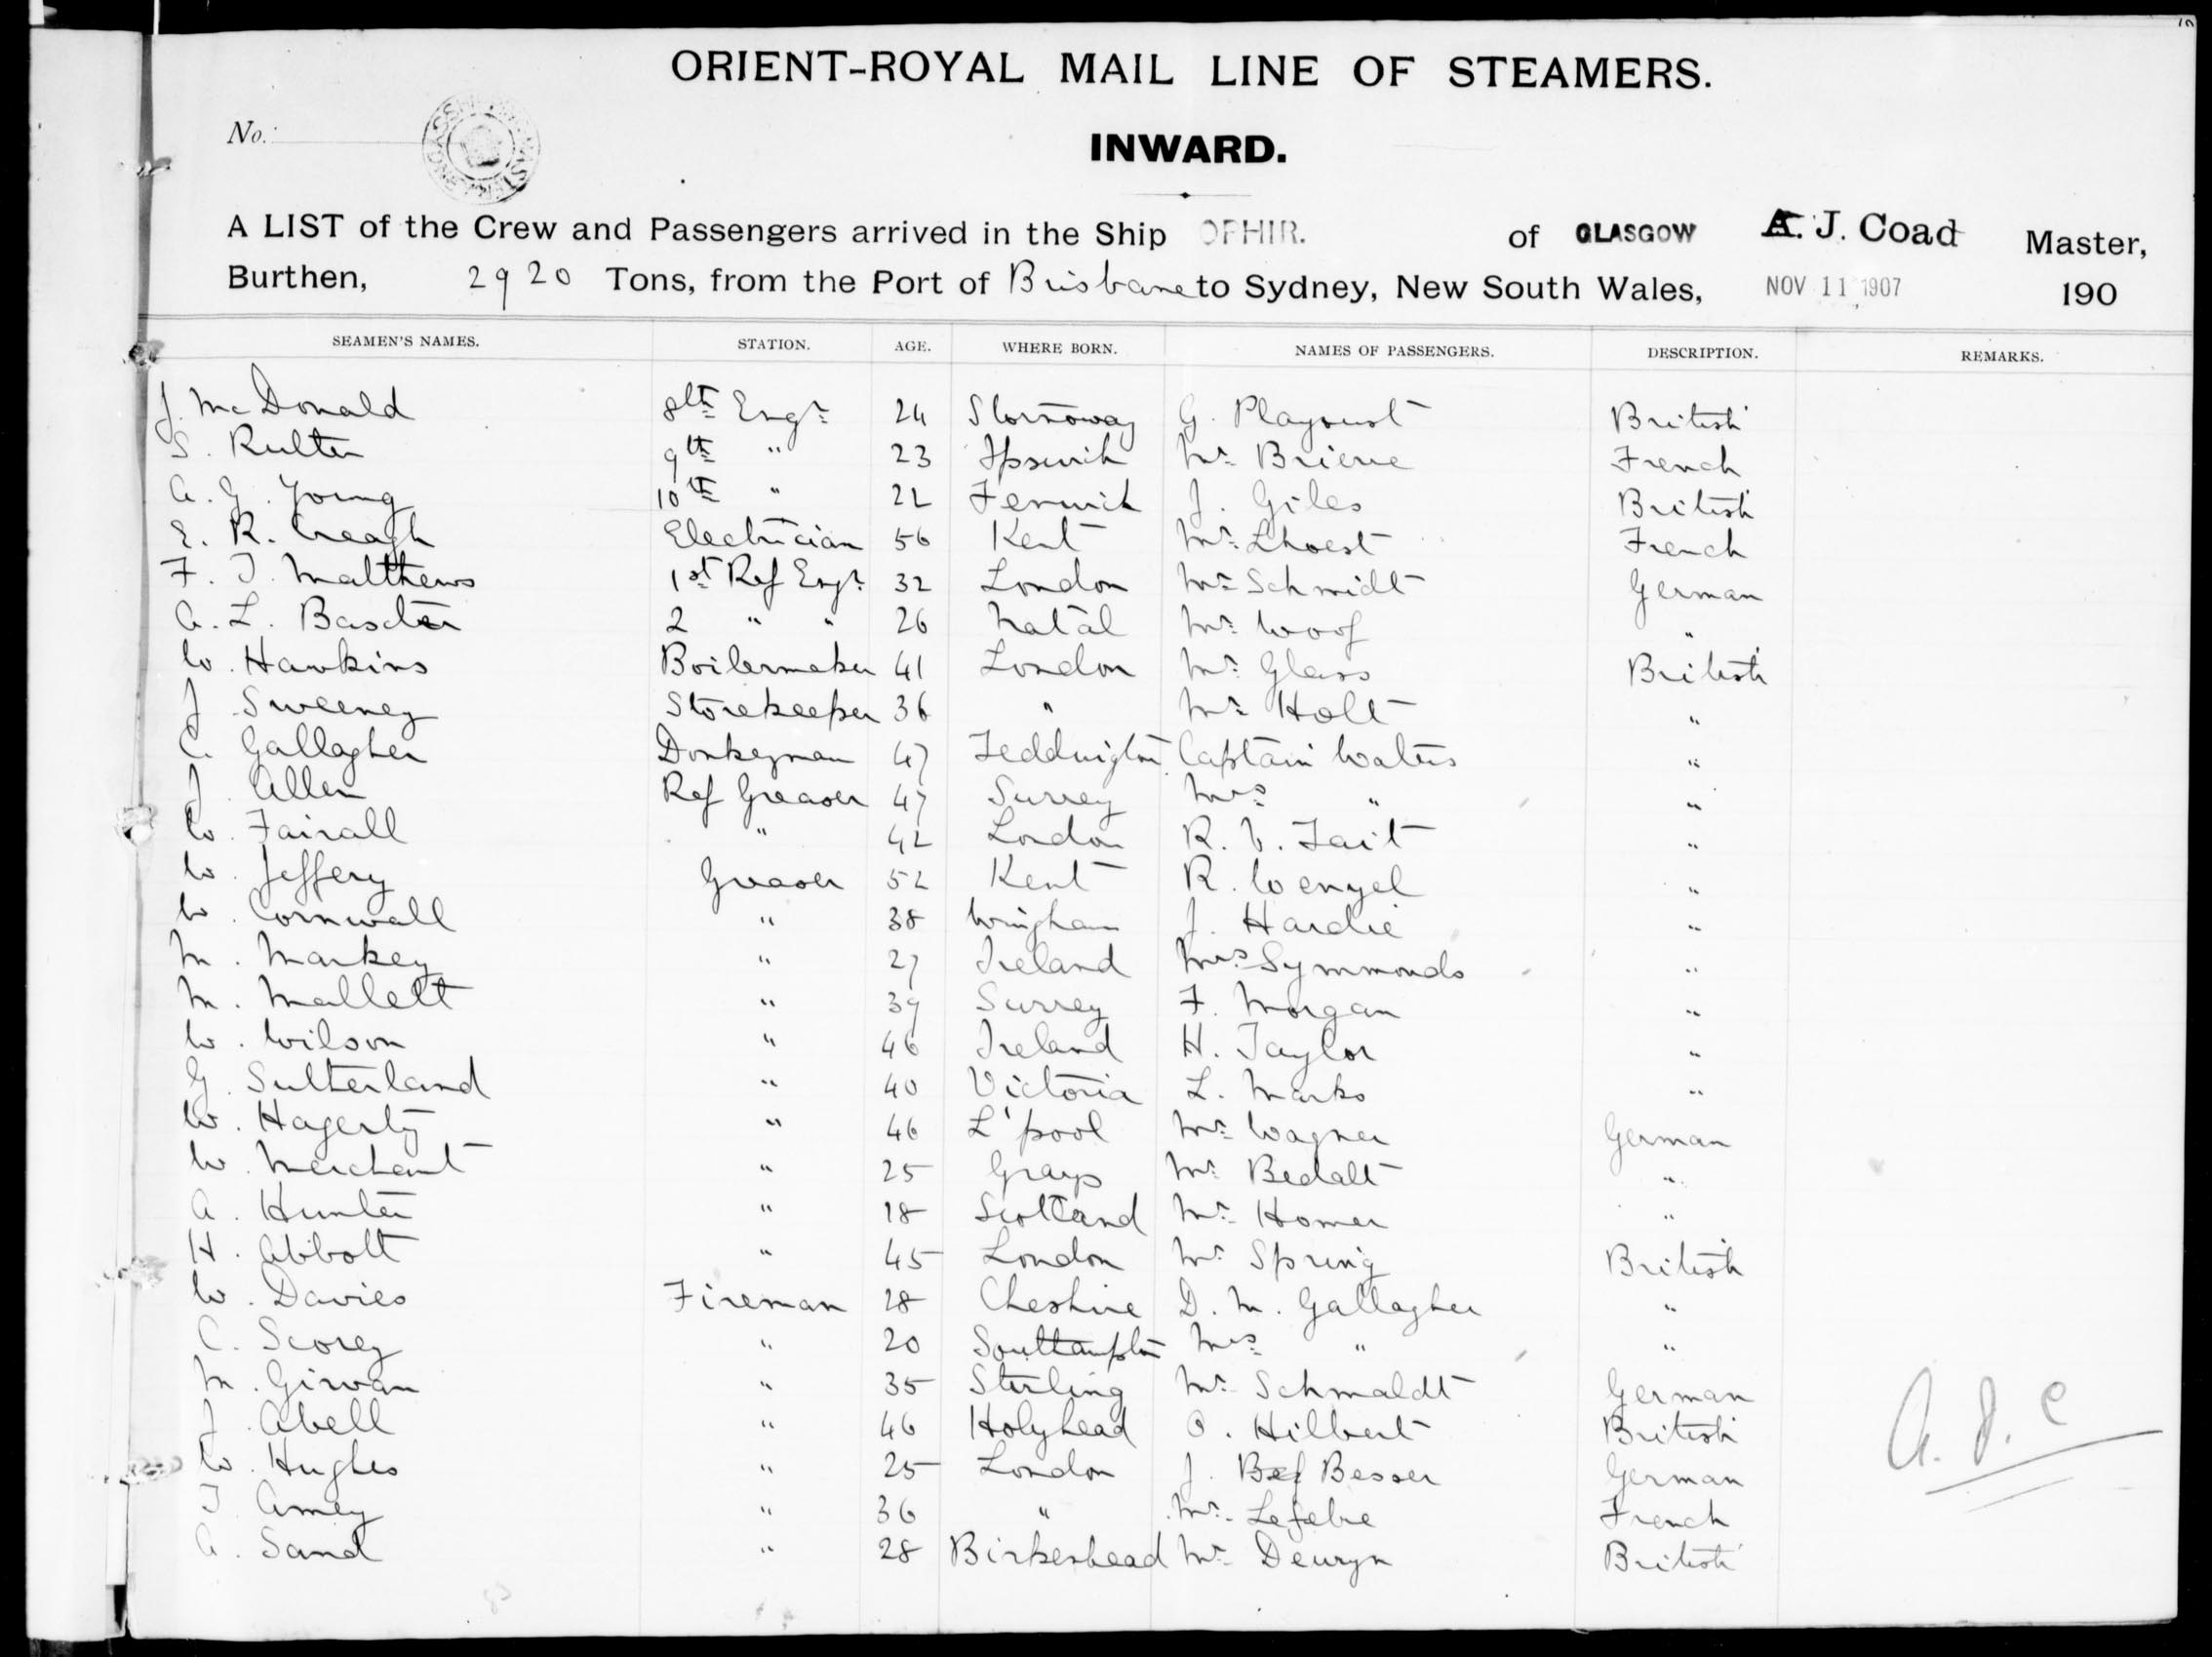 ORIENT-ROYAL MAIL LINE OF STEAMERS.
No.
INWARD.
A LIST of the Crew and Passengers arrived in the Ship OPHIR. of GLASGOW A. J. Coad Master,
Burthen, 2920 Tons, from the Port of Brisbane to Sydney, New South Wales, NOV 11 1907 190
SEAMEN'S NAMES. STATION. AGE. WHERE BORN. NAMES OF PASSENGERS. DESCRIPTION. REMARKS.
J. McDonald 8th Engr 24 Stornoway G. Playoust British
S. Rutter 9th " 23 Ipswich Mr Brierre French
A. G. Young 10th " 22 Fenwick J. Giles British
E. R. Creagh Electrician 56 Kent Mr Lhoest French
F. J. Matthews 1st Ref Engr 32 London Mr Schmidt German
A. L. Baxter 2 " " 26 Natal Mr Woof "
W. Hawkins Boilermaker 41 London Mr Glass British
J Sweeney Storekeeper 36 " Mr Holt "
C. Gallagher Donkeyman 47 Teddington Captain Waters "
J. Allen Ref Greaser 47 Surrey Mrs " "
W. Fairall " 42 London R. V. Tait "
W. Jeffery Greaser 52 Kent R. Wenzel "
W. Cornwall " 38 Wingham J. Hardie "
M. Markey " 27 Ireland Mrs Symmonds "
M. Mallett " 39 Surrey F. Morgan "
W. Wilson " 46 Ireland H. Taylor "
G. Sutherland " 40 Victoria L. Marks "
W. Hagerty " 46 L'pool Mr Wagner German
W. Merchant " 25 Grays Mr Bedalt "
A. Hunter " 18 Scotland Mr Homer "
H. Abbott " 45 London Mr Spring British
W. Davies Fireman 28 Cheshire D. M. Gallagher "
C. Scorey " 20 Southampton Mrs " "
M. Girvan " 35 Sterling Mr Schmaldt German
J. Abell " 46 Holyhead O. Hilbert British
W. Hughes " 25 London J. Bef Besser German
T Amey " 36 " Mr. Lefebre French
A. Sand " 28 Birkenhead Mr Deuryn British
A. J. C